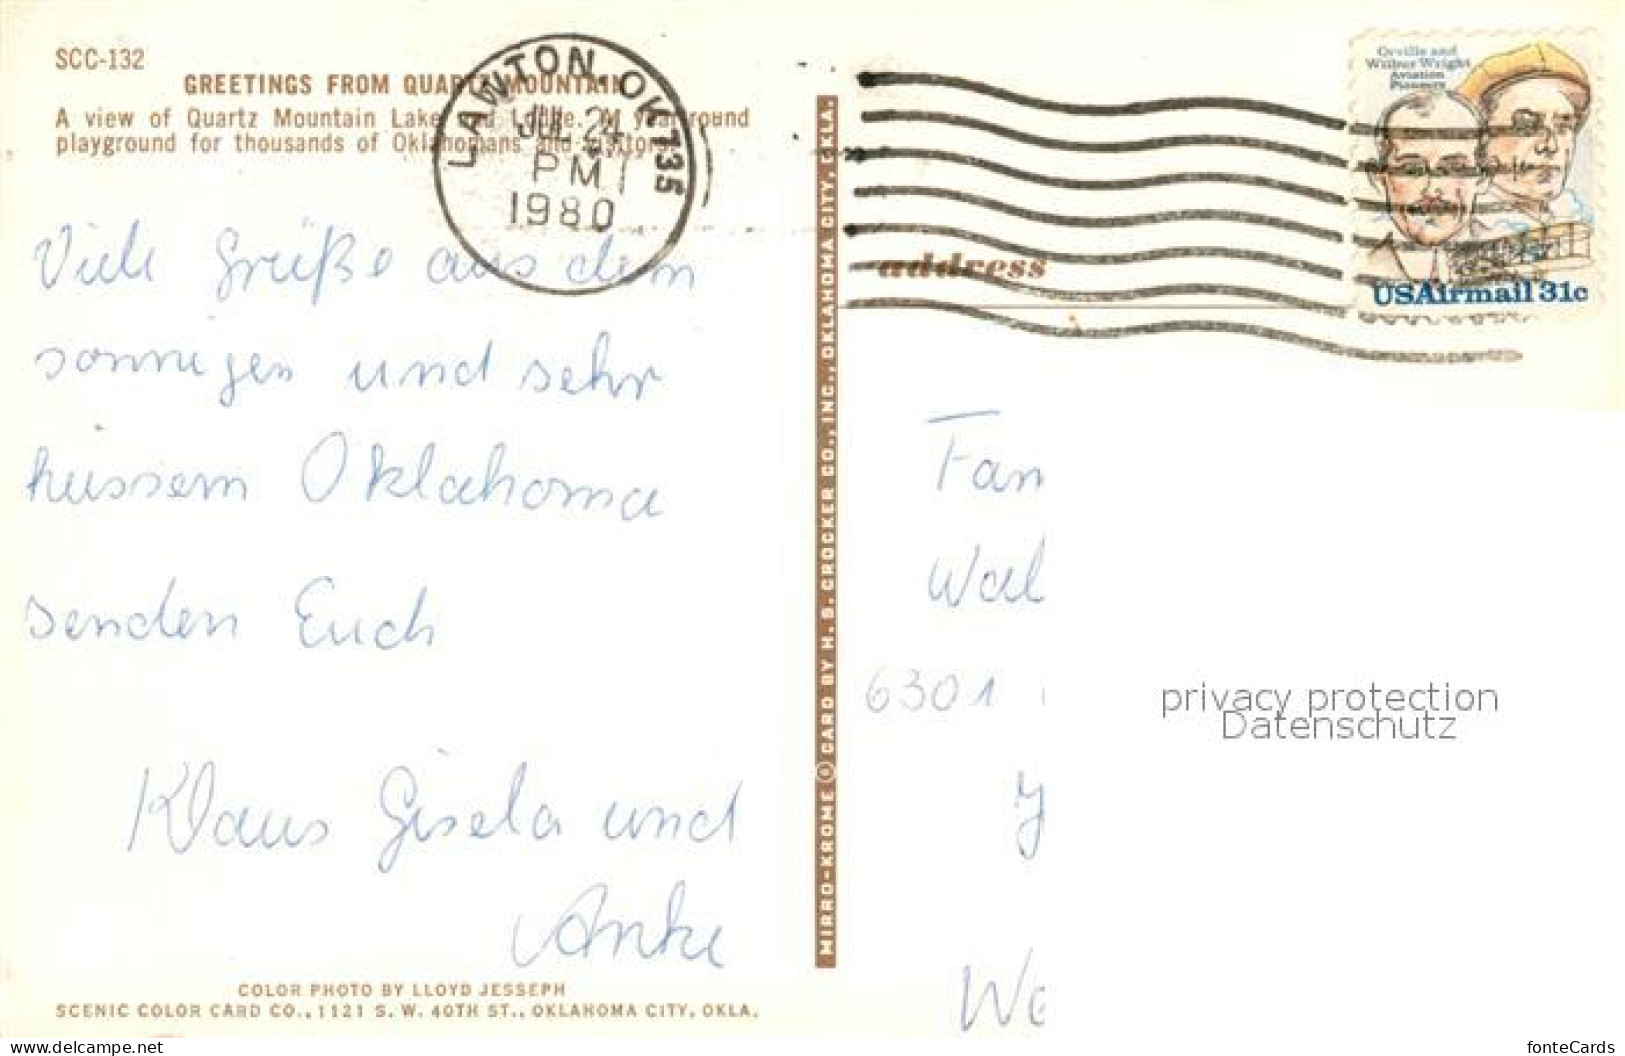 SCC-132
GREETINGS FROM QUARTZ MOUNTAIN
A view of Quartz Mountain Lake and Lodge. "A year round
playground for thousands of Oklahomans and visitors
LAWTON, OK 735
JUL 24
PM
1980
Orville and
Wilbur Wright
Aviation
Pioneers
USAirmail 31c
address
Viele Grüße aus dem
sonnigen und sehr
heissem Oklahoma
senden Euch
Klaus Gisela und
Anke
COLOR PHOTO BY LLOYD JESSEPH
SCENIC COLOR CARD CO., 1121 S. W. 40TH ST., OKLAHOMA CITY, OKLA.
MIRRO-KROME ® CARD BY H. S. CROCKER CO., INC., OKLAHOMA CITY, OKLA.
Fam
Wal
6301
We
privacy protection
Datenschutz
www.delcampe.net
fonteCards